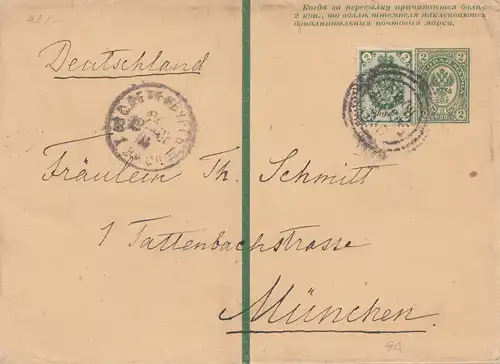 Когда за пересылку причитается болѣе
2 коп., то возлѣ штемпеля наклеиваются
дополнительныя почтовыя марки.
Deutschland
2 2
2 2
Fräulein Th. Schmitt
1 Tattenbachstrasse
München.